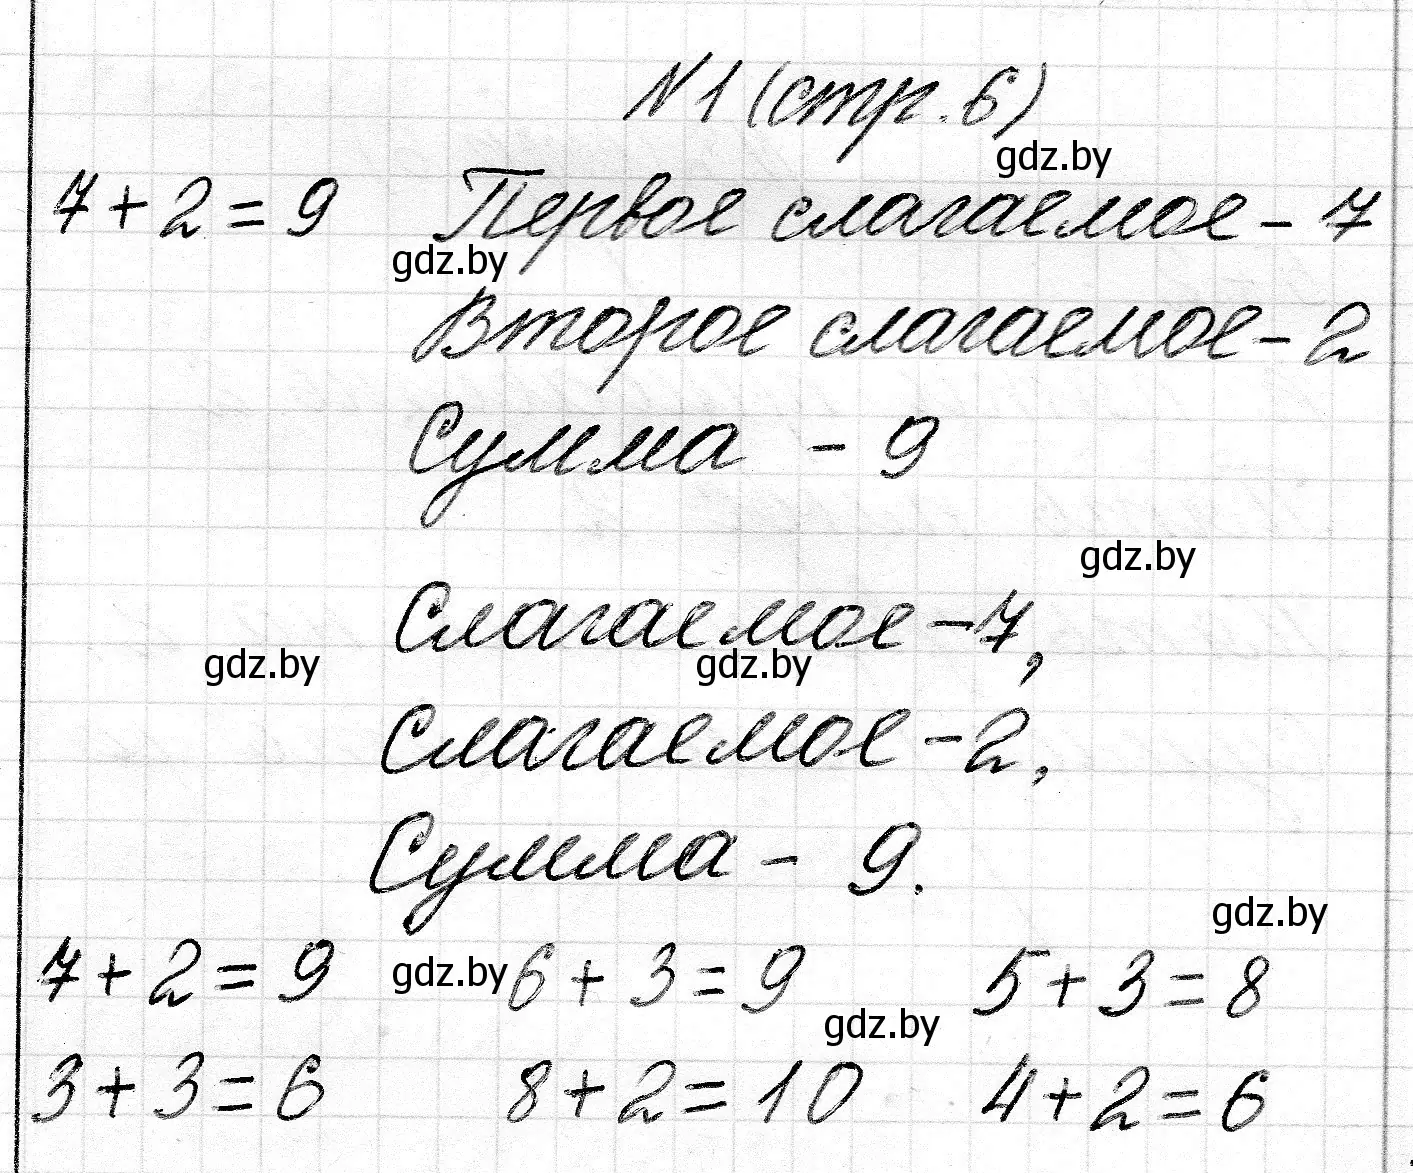 №1 (стр. 6)
gdz.by
7+2=9 Первое слагаемое - 7
gdz.by
Второе слагаемое - 2
Сумма - 9
gdz.by
Слагаемое - 7,
gdz.by gdz.by
Слагаемое - 2,
Сумма - 9.
gdz.by
7+2=9 6+3=9 5+3=8
gdz.by
gdz.by
3+3=6 8+2=10 4+2=6